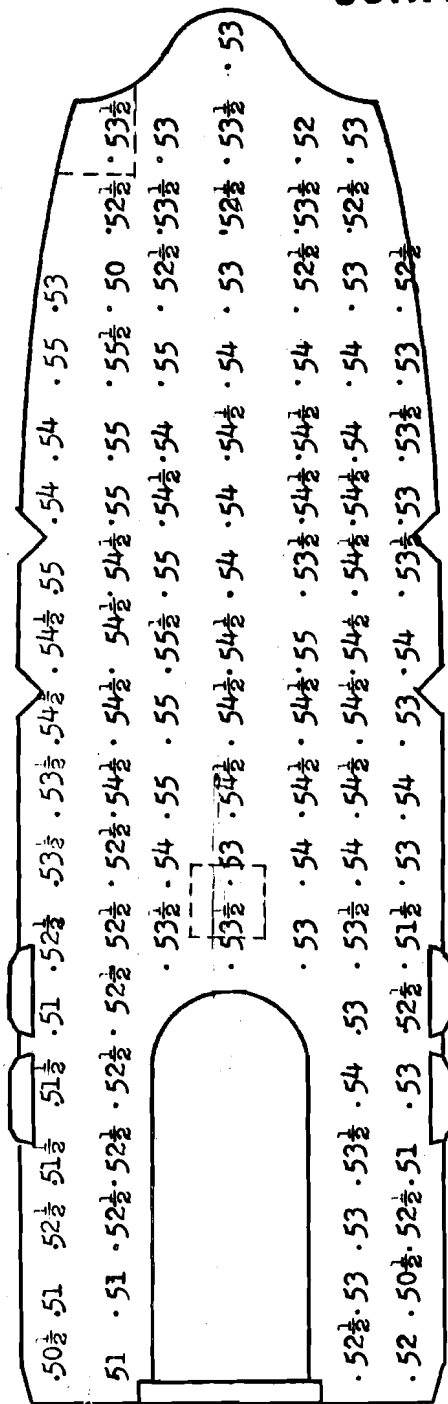 .50½ .51 52½ 51½ .51½ .51 .52½ .53½ .53½ .54½ .54½ 55 .54 .54 .55 .53
51 .51 .52½ .52½ .52½ .52½ 52½ .52½ .54½ .54½ 54½ .54½ .55 .55 .55½ .50 .52½ .53½
.53½ .54 .55 .55 .55½ .55 .54½ .54 .55 .52½ .53½ .53
.53½ .53 .54½ .54½ .54½ .54 .54 .54½ .54 .53 .52½ .53½ .53
.53 .54 .54½ .54½ .55 .53½ .54½ .54½ .54 .52½ .53½ .52
.52½ .53 .53 .53½ .54 .53 .53½ .54 .54½ .54½ .54½ .54½ .54½ .54 .54 .53 .52½ .53
.52 .50½ .52½ .51 .53 52½ .51½ .53 .54 .53 .54 .53½ .53 .53½ .53 .52½